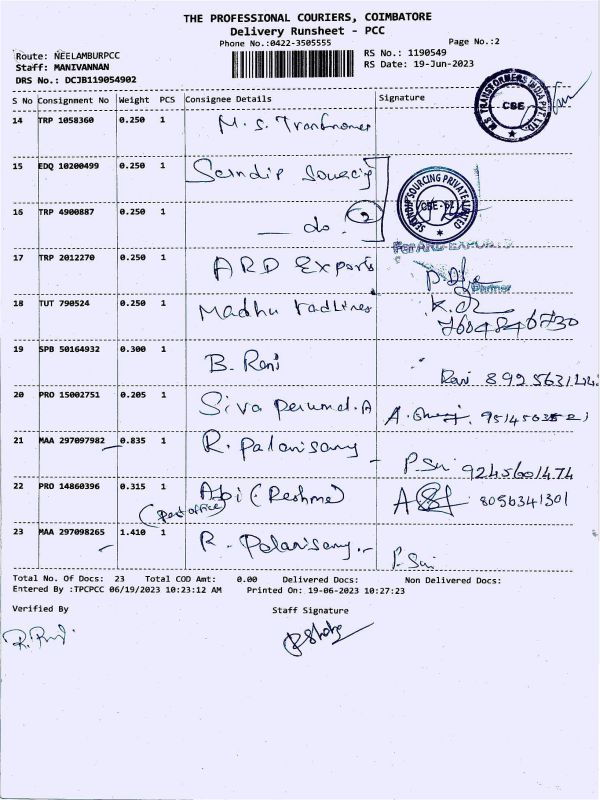 THE PROFESSIONAL COURIERS, COIMBATORE
Delivery Runsheet - PCC
Phone No.:0422-3505555
Page No.:2
Route: NEELAMBURPCC
RS No.: 1190549
Staff: MANIVANNAN
RS Date: 19-Jun-2023
DRS No.: DCJB119054902
S No Consignment No Weight PCS Consignee Details Signature
14 TRP 1058360 0.250 1 M. S.
M.S TRANSFORMERS INDIA PVT. LTD. CBE
15 EDQ 10200499 0.250 1 Sourcing
SOURCING PRIVATE LIMITED
16 TRP 4900887 0.250 1 do. 2
For ARD EXPORTS
17 TRP 2012270 0.250 1 ARD Exports
Partner
18 TUT 790524 0.250 1 Madhu
7604846730
19 SPB 50164932 0.300 1 B. Rani
20 PRO 15002751 0.205 1 Siva Perumal. A
21 MAA 297097982 0.835 1 R. Palanisamy
9245601474
22 PRO 14860396 0.315 1 Abi (Reshma) 8056341301
(Post office)
23 MAA 297098265 1.410 1 R. Palanisamy
Total No. Of Docs: 23 Total COD Amt: 0.00 Delivered Docs: Non Delivered Docs:
Entered By :TPCPCC 06/19/2023 10:23:12 AM Printed On: 19-06-2023 10:27:23
Verified By Staff Signature